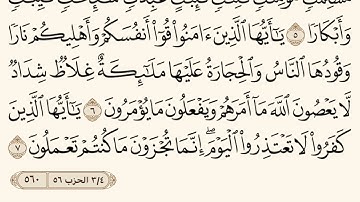 وَأَبْكَارًا ٥ يَٰٓأَيُّهَا ٱلَّذِينَ ءَامَنُوا۟ قُوٓا۟ أَنفُسَكُمْ وَأَهْلِيكُمْ نَارًا
وَقُودُهَا ٱلنَّاسُ وَٱلْحِجَارَةُ عَلَيْهَا مَلَٰٓئِكَةٌ غِلَاظٌ شِدَادٌ
لَّا يَعْصُونَ ٱللَّهَ مَآ أَمَرَهُمْ وَيَفْعَلُونَ مَا يُؤْمَرُونَ ٦ يَٰٓأَيُّهَا ٱلَّذِينَ
كَفَرُوا۟ لَا تَعْتَذِرُوا۟ ٱلْيَوْمَ ۖ إِنَّمَا تُجْزَوْنَ مَا كُنتُمْ تَعْمَلُونَ ٧
٣/٤ الحزب ٥٦
٥٦٠